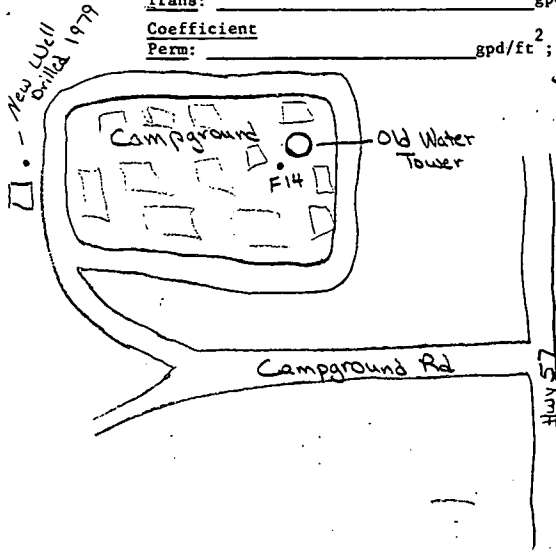 Trans: gpd
Coefficient
Perm: gpd/ft²;
New Well
Drilled 1979
Campground
Old Water
Tower
F14
Campground Rd
Hwy 57